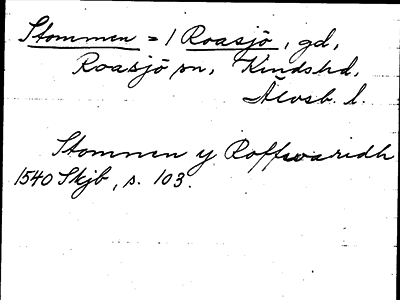 Stommen = 1 Roasjö, gd,
Roasjö sn, Kindshd,
Älvsb. l.
Stommen y Roffwaridh
1540 Skjb, s. 103.